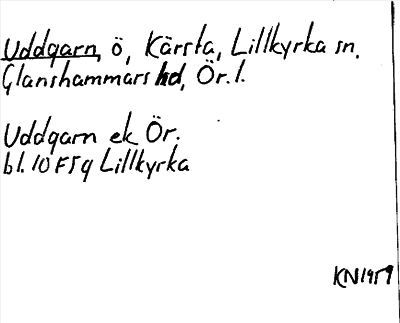 Uddgarn, ö, Kärsta, Lillkyrka sn,
Glanshammars hd, Ör. l.
Uddgarn ek Ör.
bl. 10 F5g Lillkyrka
KN1959